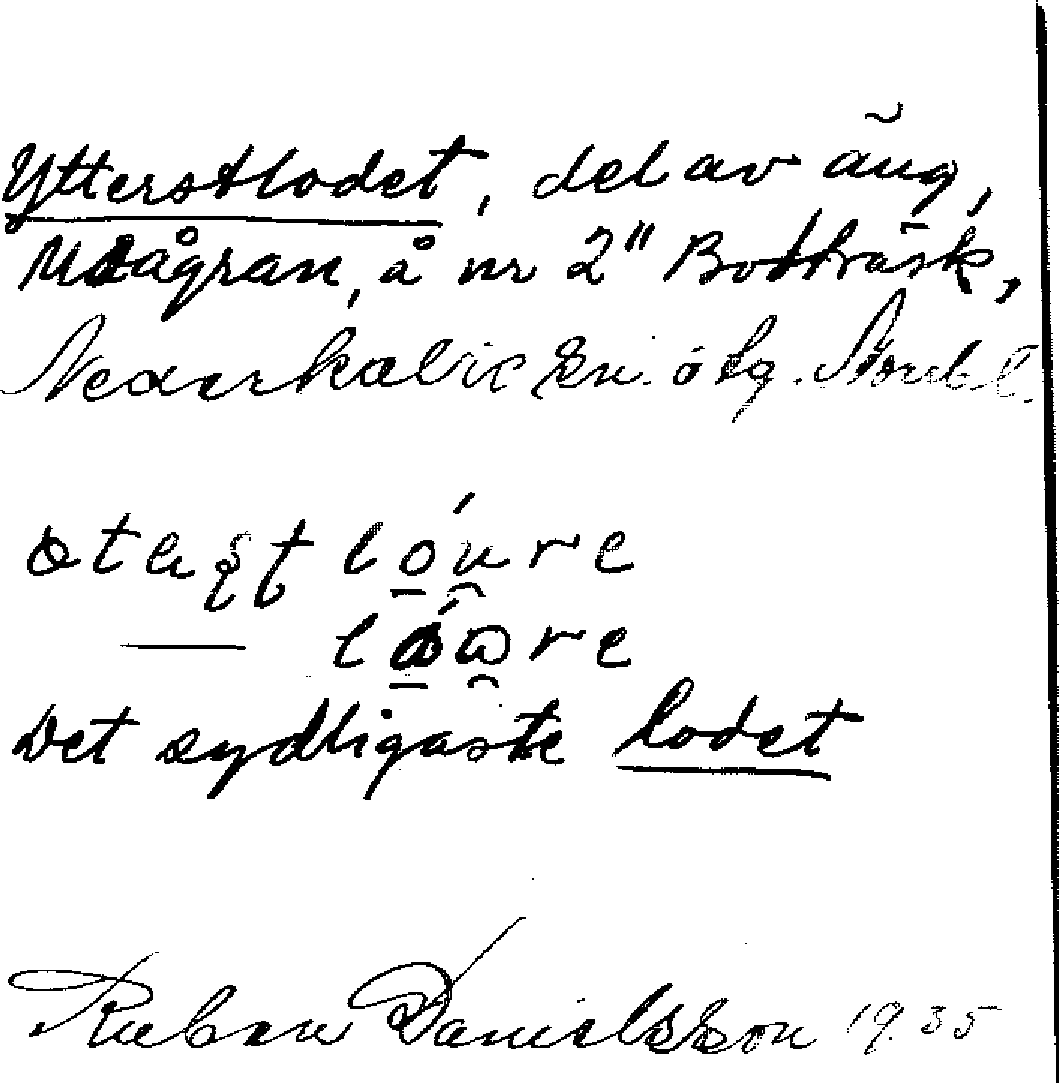 Ytterstlodet, del av äng,
å nr 2" Bodträsk,
Nederkalix sn. ö tg. Norrb l.
lóure
— re
Det sydligaste lodet
Ruben Danielsson 1935